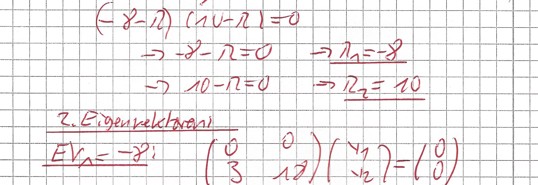 (-8-λ) (10-λ)=0
→ -8-λ=0 → λ₁=-8
→ 10-λ=0 → λ₂=10
2. Eigenvektoren:
EV₁=-8: (0 0; 3 18) (v₁; v₂) = (0; 0)